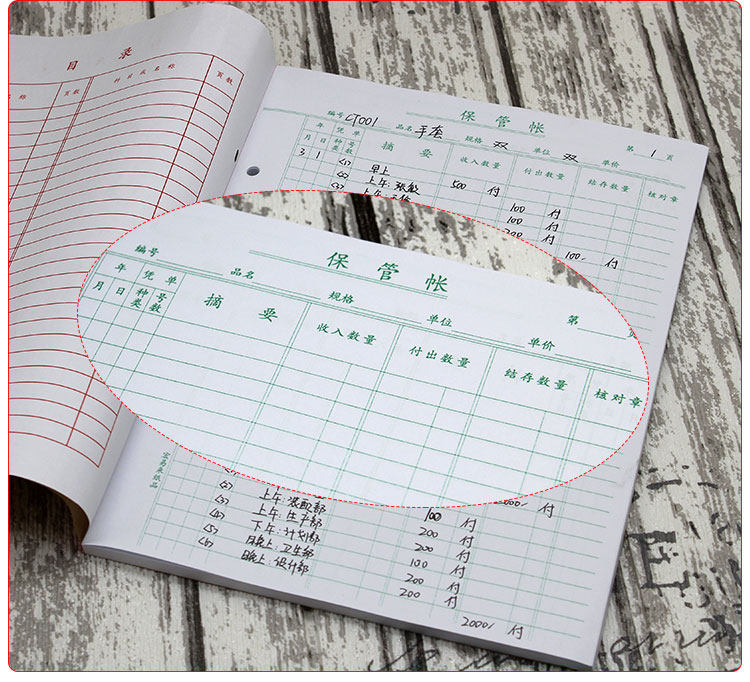 目 录
科目或名称 页数
页数
保 管 帐
编号 CT001 品名 手套 规格 双 单位 双 单价 第 1 页
年 凭 单 摘 要 收入数量 付出数量 结存数量 核对章
月 日 种类 号数
3 1 <1> 早上 500 付
<2> 上午:张敏 100 付
100 付
200 付
100/ 付
保 管 帐
编号 品名 规格 单位 单价 第 页
年 凭 单 摘 要 收入数量 付出数量 结存数量 核对章
月 日 种类 号数
宏易来纸品
2000/ 付
<2> 上午:装配部 100 付
<3> 上午:生产部 200 付
<4> 下午:计划部 200 付
<5> 日晚上:卫生部 100 付
<6> 日晚上:设计部 200 付
200 付
2000/ 付